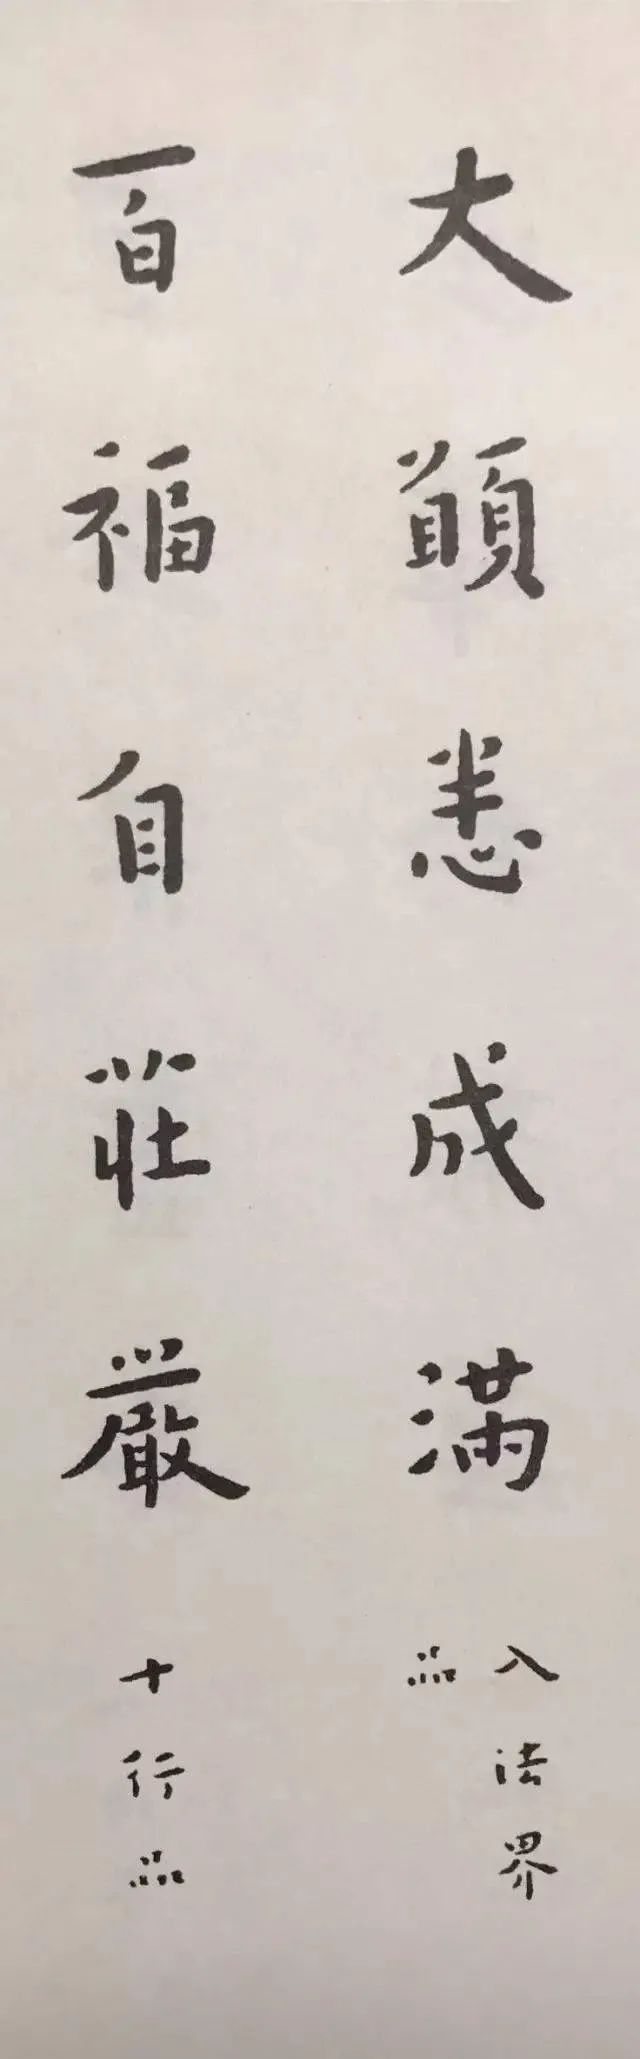 大願悉成滿
入法界
品
百福自莊嚴
十行品